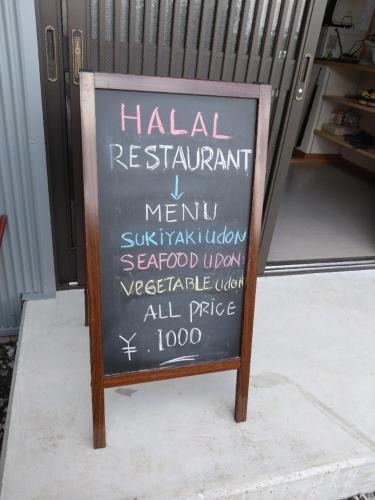 HALAL
RESTAURANT
↓
MENU
SUKIYAKI UDON
SEAFOOD UDON
VEGETABLE UDON
ALL PRICE
¥.1000